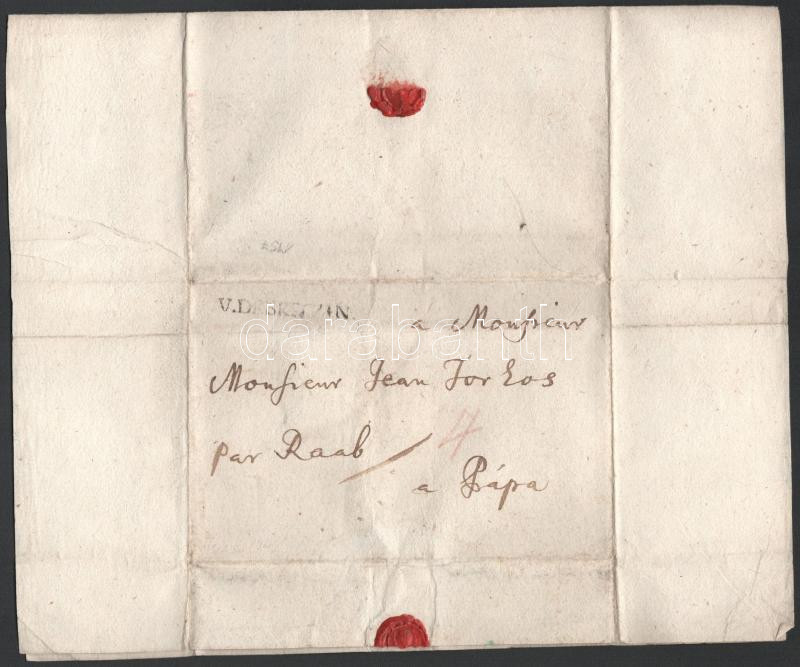 V. DEBRETZIN.
a Monsieur
Monsieur Jean Torkos
par Raab
7
a Pápa
darabanth